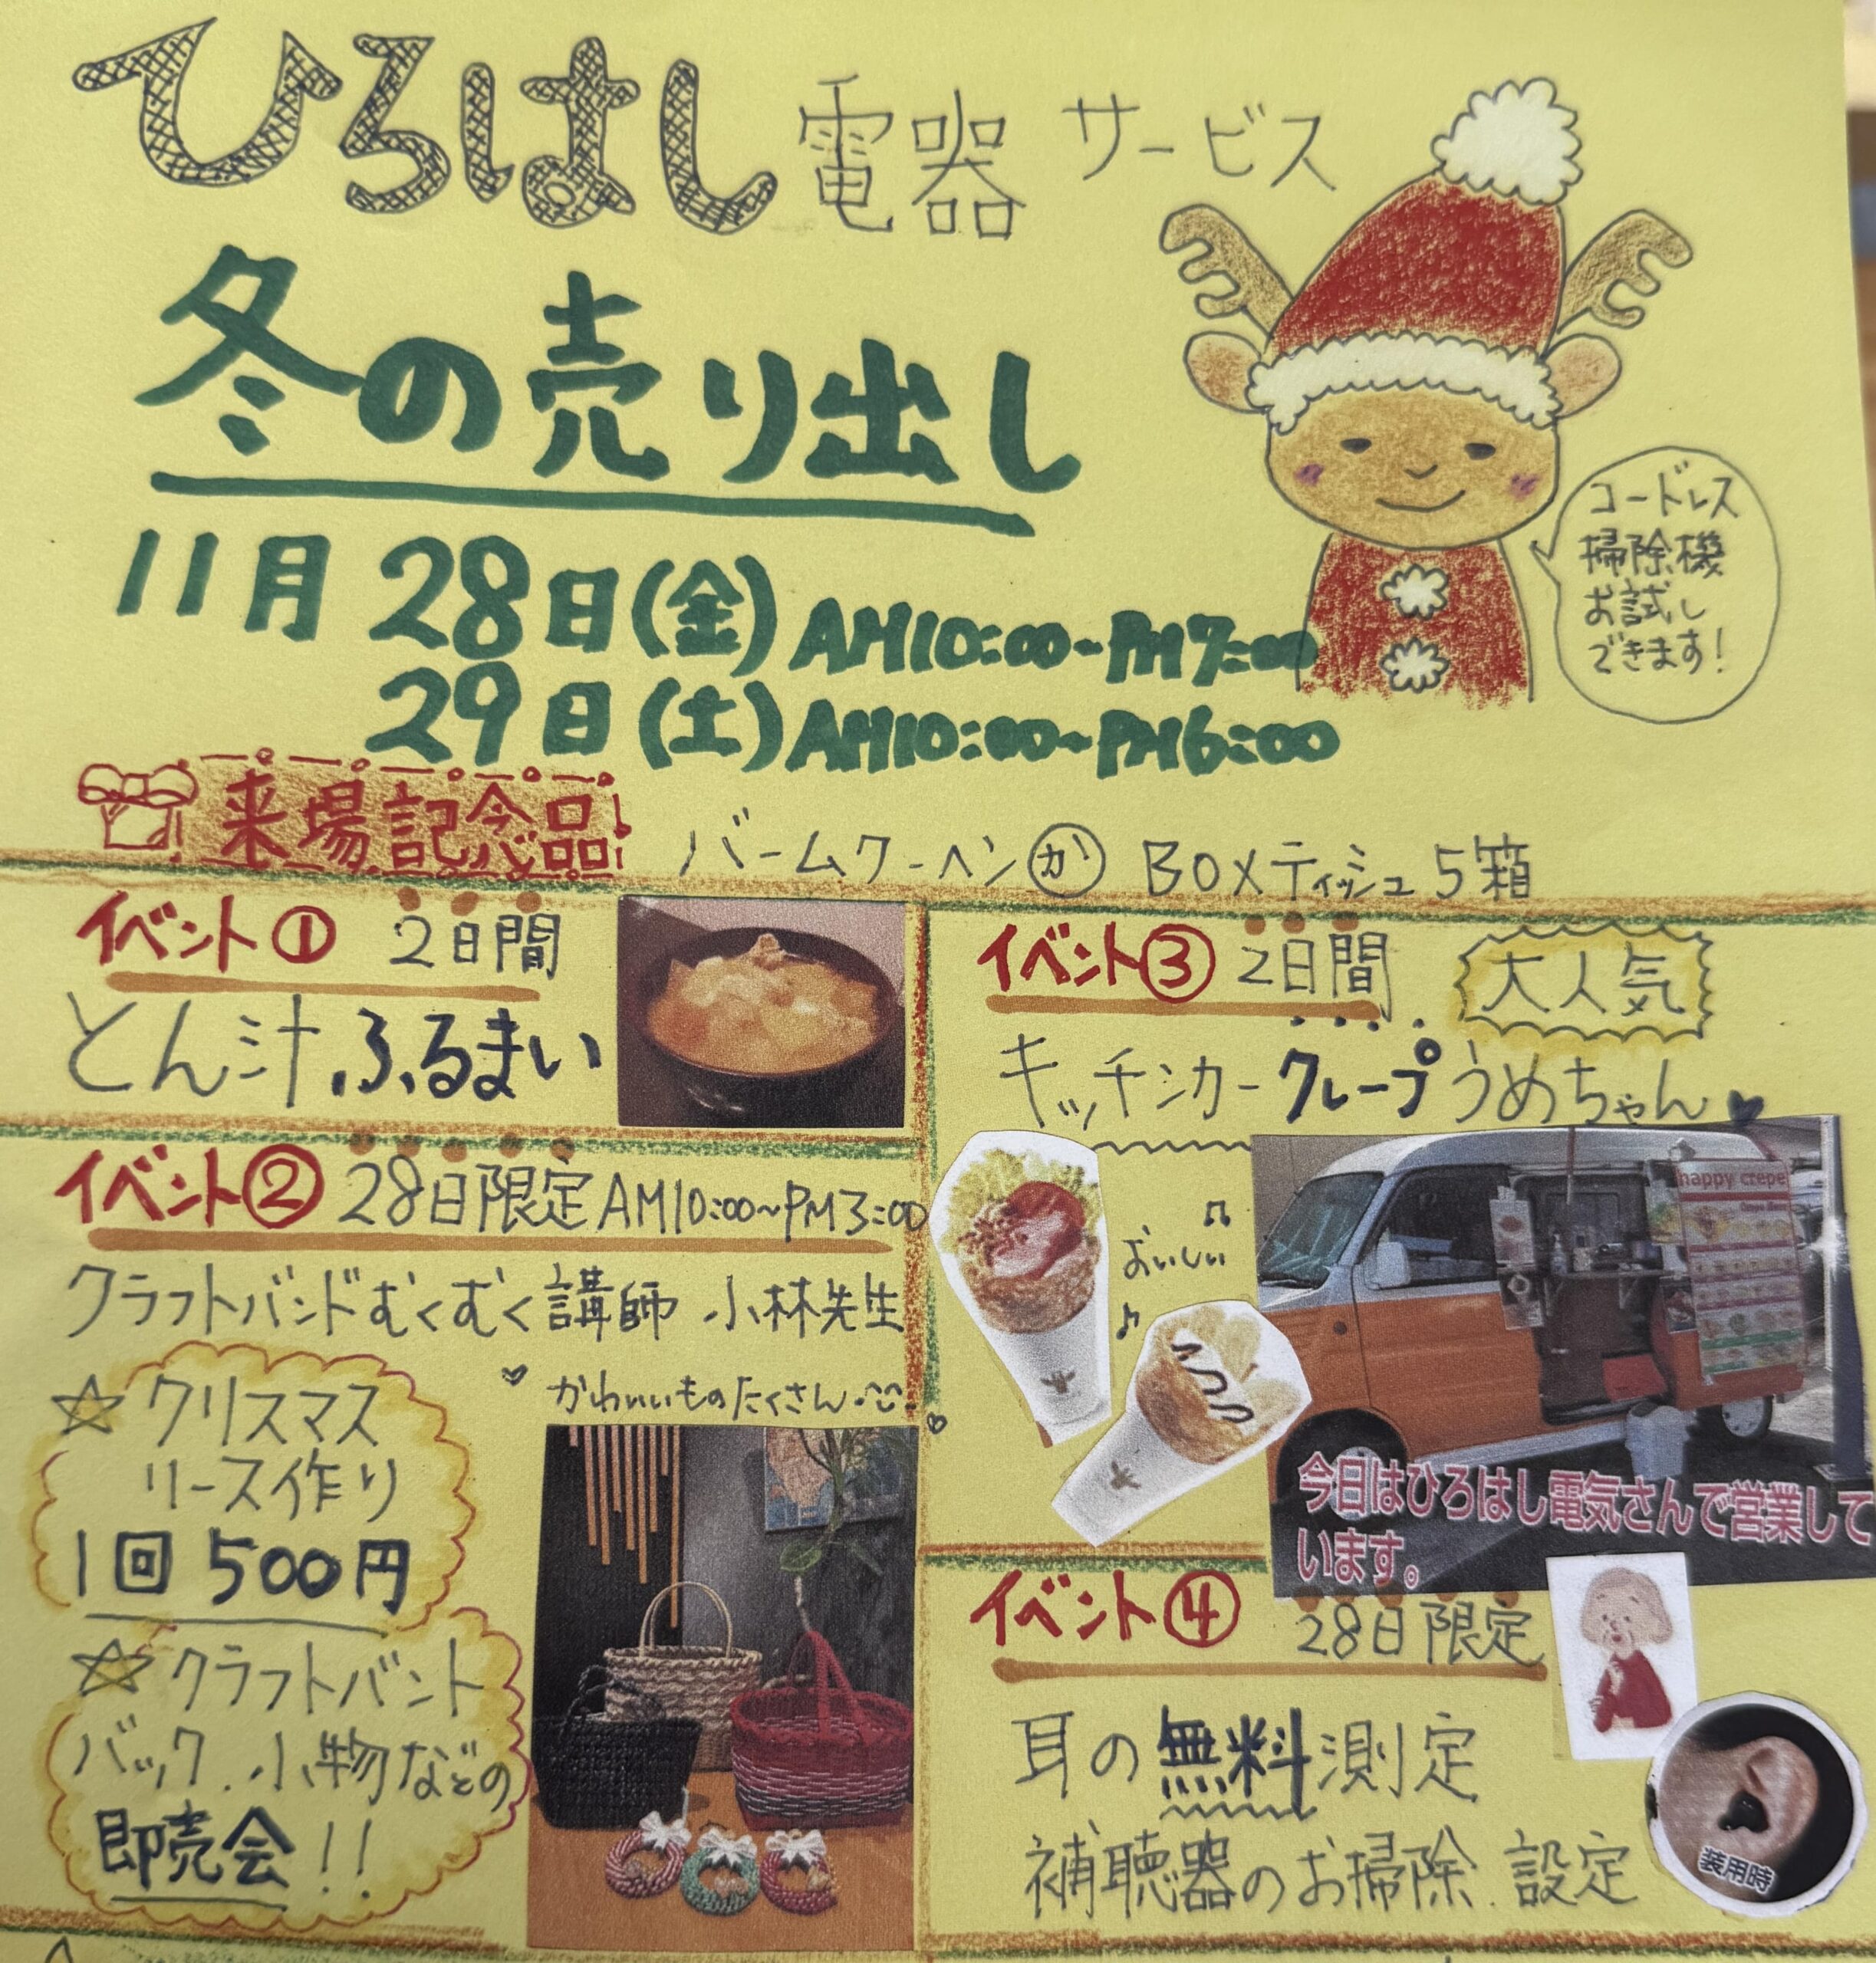 ひろはし電器サービス
冬の売り出し
11月28日(金)AM10:00~PM7:00
29日(土)AM10:00~PM6:00
コードレス
掃除機
お試し
できます!
来場記念品 バームクーヘンか BOXティッシュ5箱
イベント① 2日間
とん汁ふるまい
イベント② 28日限定AM10:00~PM3:00
クラフトバンドむくむく講師 小林先生
かわいいものたくさん
☆クリスマス
リース作り
1回500円
☆クラフトバンド
バック、小物などの
即売会!!
イベント③ 2日間 大人気
キッチンカークレープうめちゃん
おいしい
happy crepe
今日はひろはし電気さんで営業して
います。
イベント④ 28日限定
耳の無料測定
補聴器のお掃除、設定
装用時